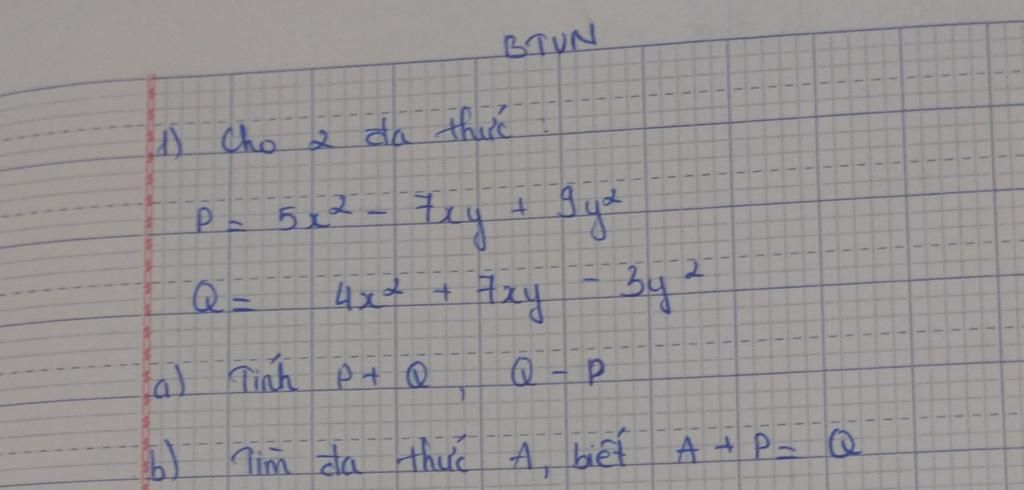 BTVN
1) Cho 2 đa thức :
P = 5x² - 7xy + 9y²
Q = 4x² + 7xy - 3y²
a) Tính P + Q, Q - P
b) Tìm đa thức A, biết A + P = Q